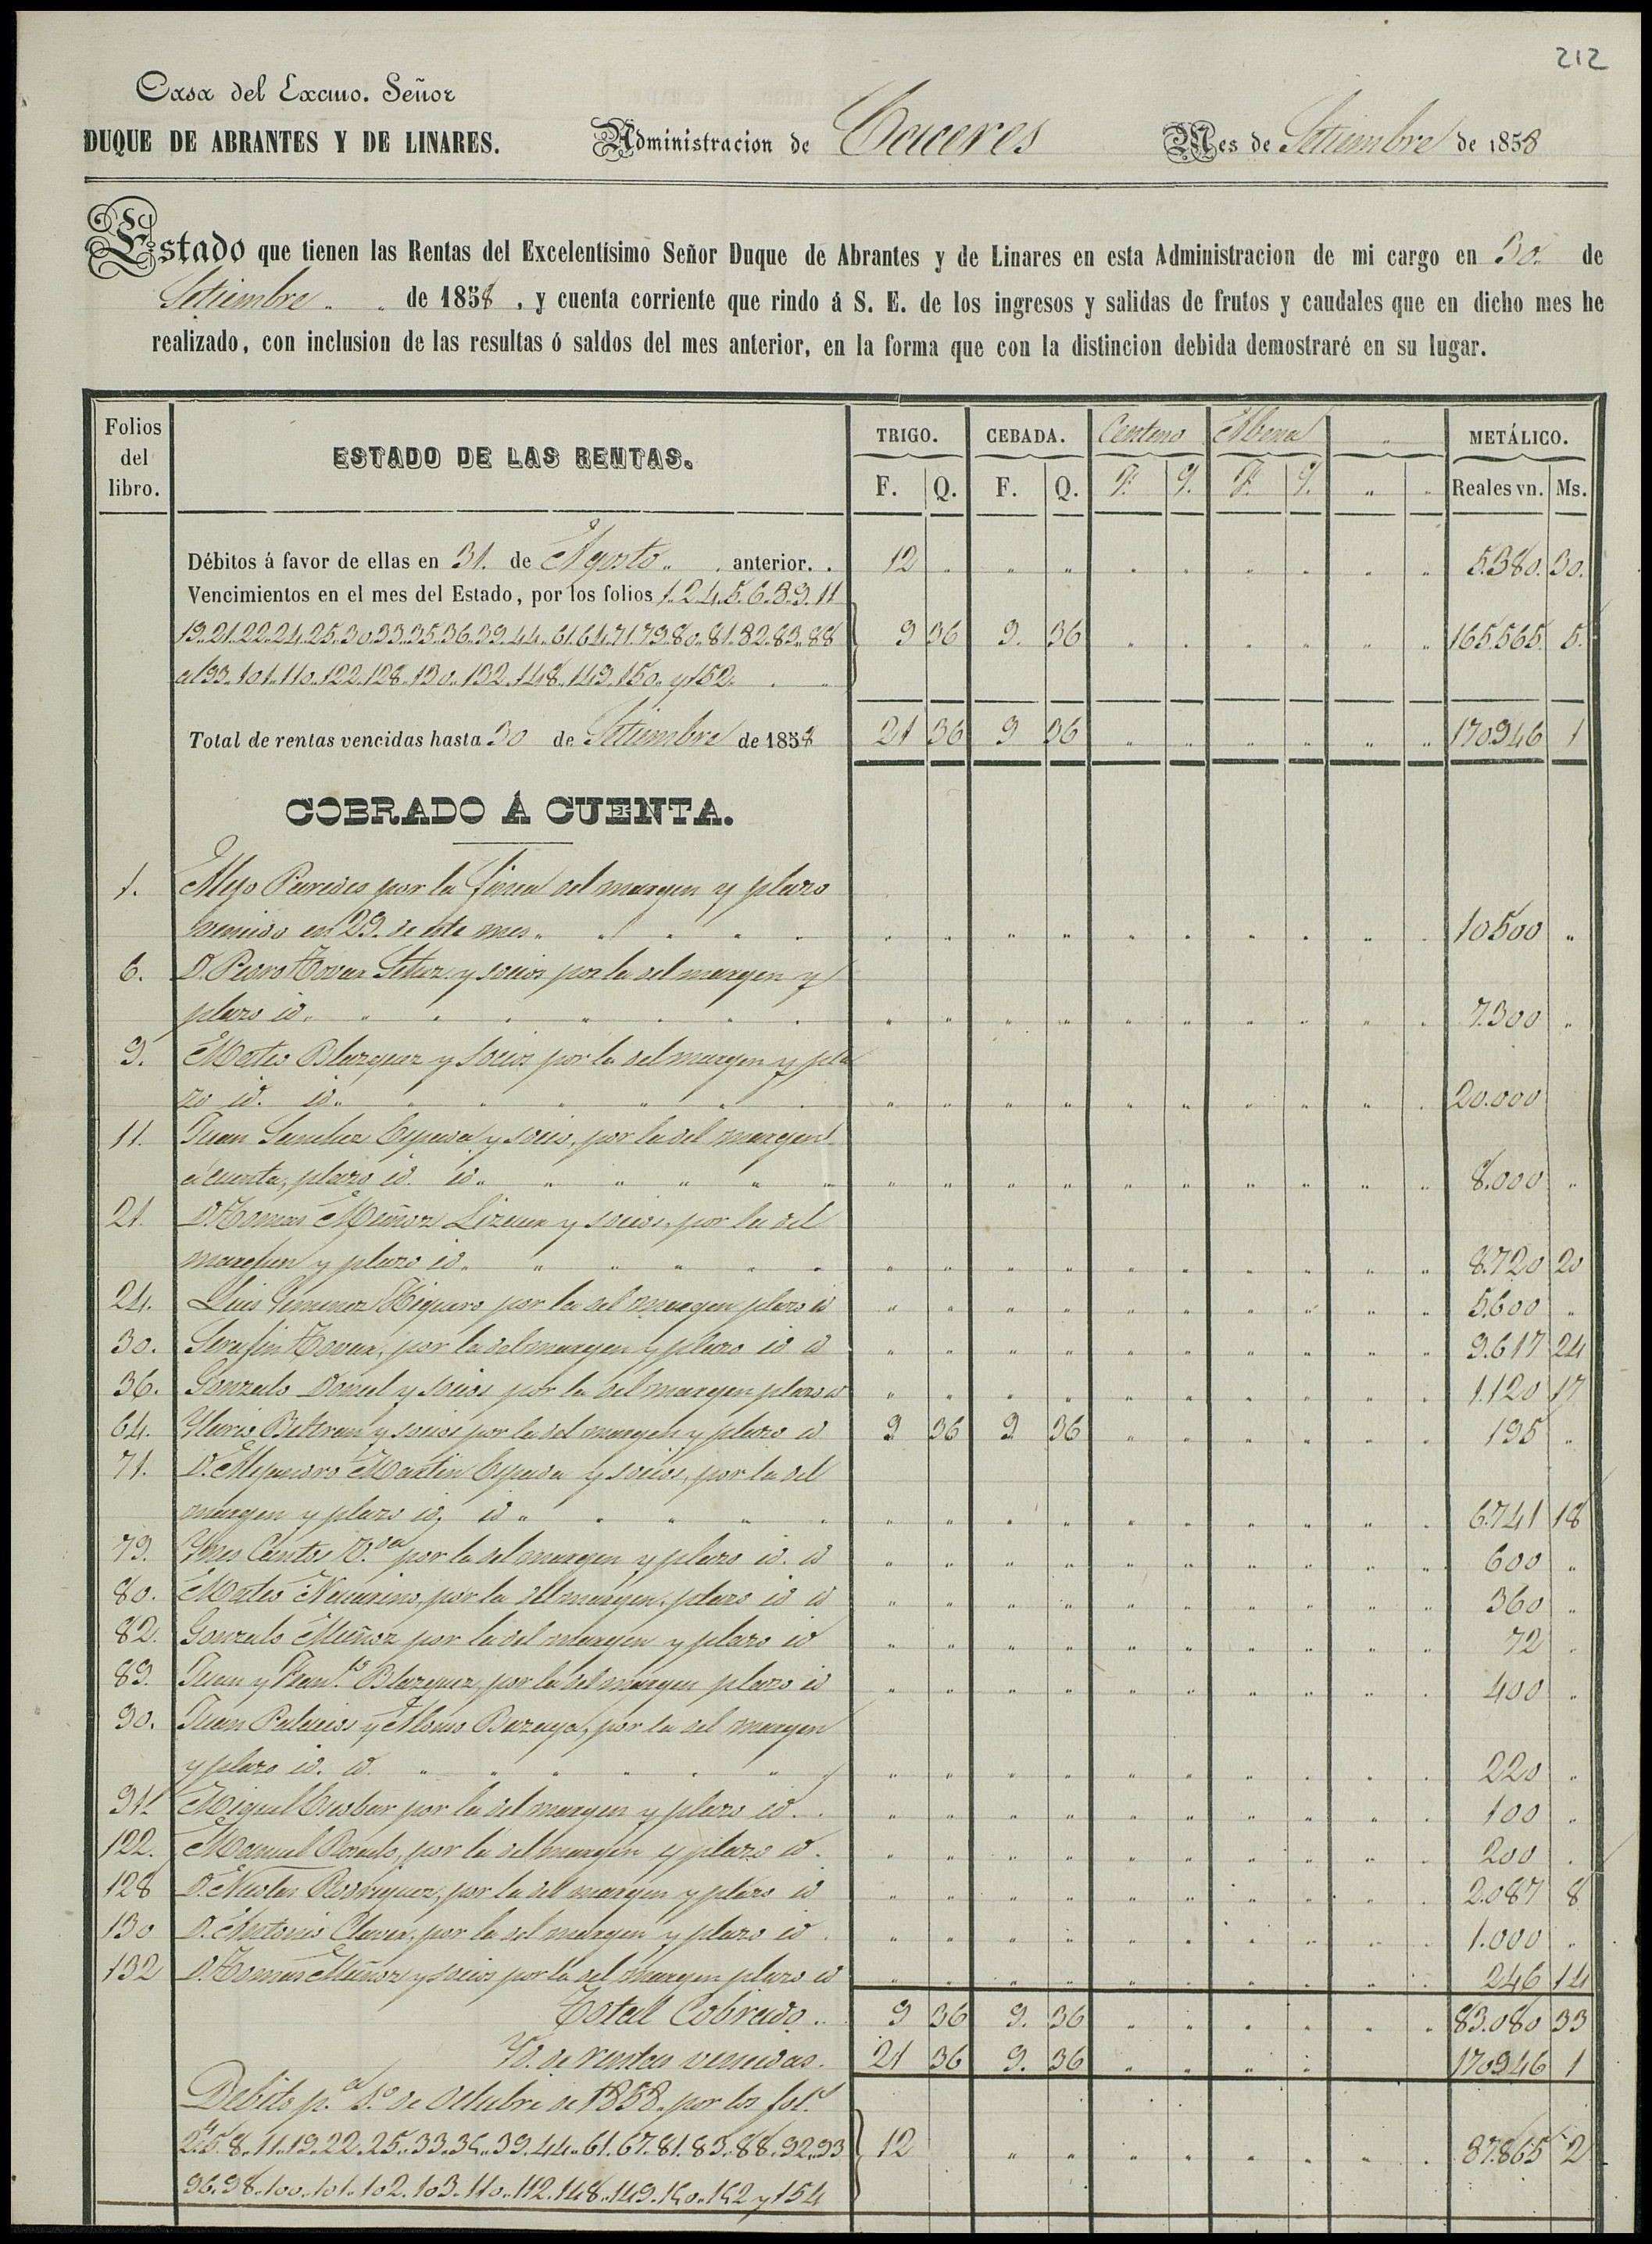 212
Casa del Excmo. Señor
DUQUE DE ABRANTES Y DE LINARES. Administracion de Caceres Mes de Setiembre de 1858
Estado que tienen las Rentas del Excelentísimo Señor Duque de Abrantes y de Linares en esta Administracion de mi cargo en 30. de
Setiembre de 1858, y cuenta corriente que rindo á S. E. de los ingresos y salidas de frutos y caudales que en dicho mes he
realizado, con inclusion de las resultas ó saldos del mes anterior, en la forma que con la distincion debida demostraré en su lugar.
Folios del libro. ESTADO DE LAS RENTAS. TRIGO. CEBADA. Centeno Abena METÁLICO.
F. Q. F. Q. F. Q. F. Q. Reales vn. Ms.
Débitos á favor de ellas en 31. de Agosto anterior. 12 5.380. 30.
Vencimientos en el mes del Estado, por los folios 1. 2. 4. 5. 6. 8. 9. 11
19. 21. 22. 24. 25. 30. 33. 35. 36. 39. 44. 61. 64. 71. 79. 80. 81. 82. 83. 88 9 36 9. 36 165.565. 5.
al 93. 101. 110. 122. 128. 130. 132. 148. 149. 150. y 152.
Total de rentas vencidas hasta 30 de Setiembre de 1858 21 36 9 36 170.946 1
COBRADO Á CUENTA.
1. Alejo Paredes por la finca del margen y plazo
vencido en 29. de este mes 10500
6. D. Pedro Tovar y socios por la del margen y
plazo id. 7.300
9. Mateo Blazquez y socios por la del margen y pla
zo id. id. 20.000
11. Juan Sanchez Espada y socio, por la del margen
á cuenta, plazo id. id. 8.000
21. D. Tomas Muñoz y socios, por la del
margen y plazo id. 8.720 20
24. Luis Gimenez Higuero por la del margen plazo id 5.600
30. Serafin Tovar, por la del margen y plazo id id 9.617 24
36. Gonzalo Donzel y socios por la del margen plazo id 1.120 17
64. Ylario Beltran y socios por la del margen y plazo id 9 36 9 36 195
71. D. Alejandro Martin Espada y socios, por la del
margen y plazo id, id 6.741 18
79. Ynes Cantos V.da por la del margen y plazo id. id 600
80. Mateo por la del margen, plazo id id 360
82. Gonzalo Muñoz por la del margen y plazo id 72
89. Juan y Fran.co Blazquez, por la del margen plazo id 400
90. Juan Palacios y Alonso por la del margen
y plazo id. id. 220
91. Miguel por la del margen y plazo id. 100
122. Manuel Rosado, por la del margen y plazo id. 200
128 D. Nicolas Rodriguez, por la del margen y plazo id 2.087 8
130 D. Antonio Claver, por la del margen y plazo id. 1.000
132 D. Tomas Muñoz y socios por la del margen plazo id 246 14
Total Cobrado 9 36 9. 36 83.080 33
Yd. de rentas vencidas. 21 36 9. 36 170.946 1
Debito p.a 1.o de Octubre de 1858. por los fol.s
2. 5. 8. 11. 19. 22. 25. 33. 35. 39. 44. 61. 67. 81. 83. 88. 92. 93 12 87.865 2
96. 98. 100. 101. 102. 103. 110. 112. 148. 149. 150. 152 y 154